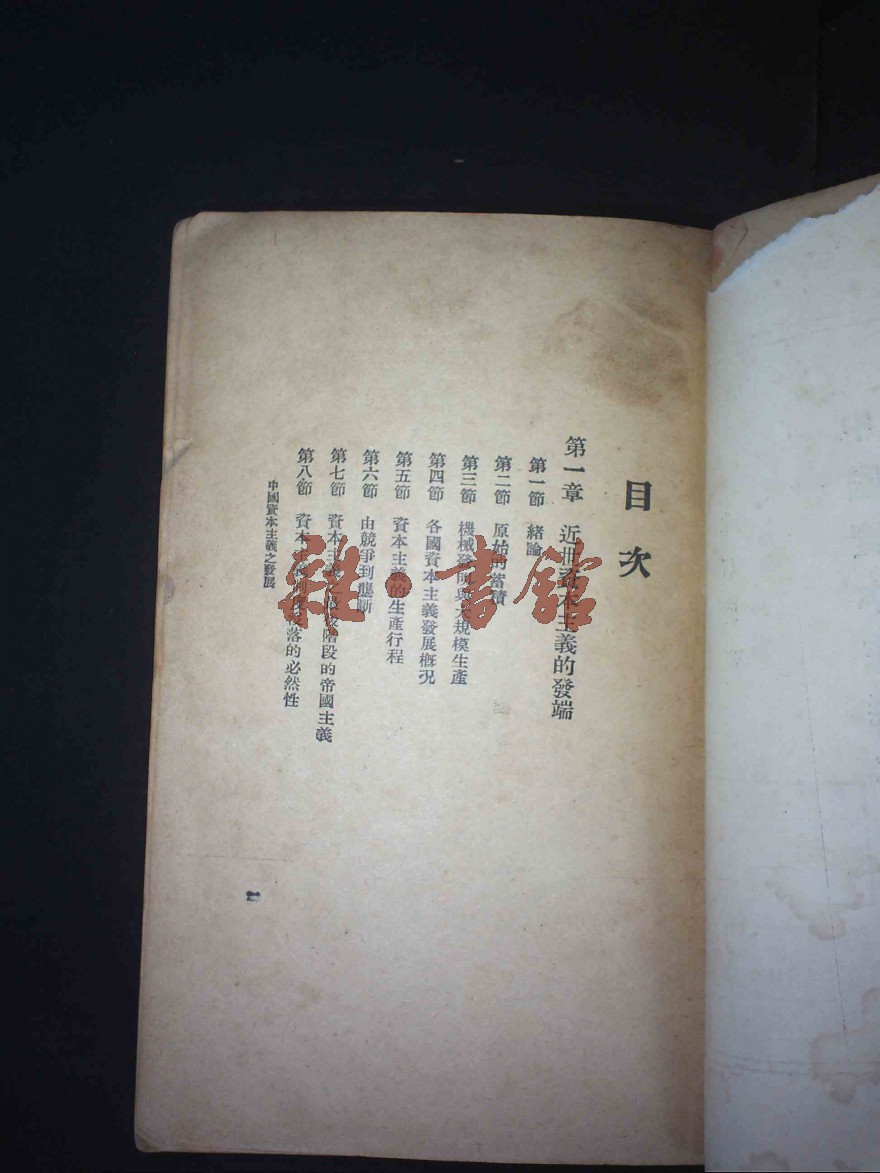 目次
第一章 近世資本主義的發端
第一節 緒論
第二節 原始的蓄積
第三節 機械發明與大規模生產
第四節 各國資本主義發展概況
第五節 資本主義的生產行程
第六節 由競爭到壟斷
第七節 資本主義之最後階段的帝國主義
第八節 資本主義 落的必然性
中國資本主義之發展
雜·書館